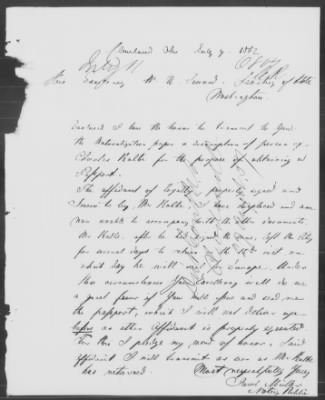 Cleveland Ohio July 7 1862
His Excellency W. H. Seward, Secretary of State
Washington
Enclosed I have the honor to transmit to you
the Naturalization paper & description of person of
Charles Kalte for the purpose of obtaining a
Passport.
The affidavit of loyalty, properly signed and
sworn to by Mr Kalte, I have misplaced and am
now unable to accompany with the other documents
Mr Kalte, after he had signed the same, left the City
for several days to return on the 15th inst on
which day he will start for Europe. Under
these circumstances Your Excellency will do me
a great favor if You will issue and send me
the passport, which I will not deliver up
before an other Affidavit is properly executed
for this I pledge my word of honor. Said
affidavit I will transmit as soon as Mr Kalte
has returned.
Most respectfully Yours
Notary Public